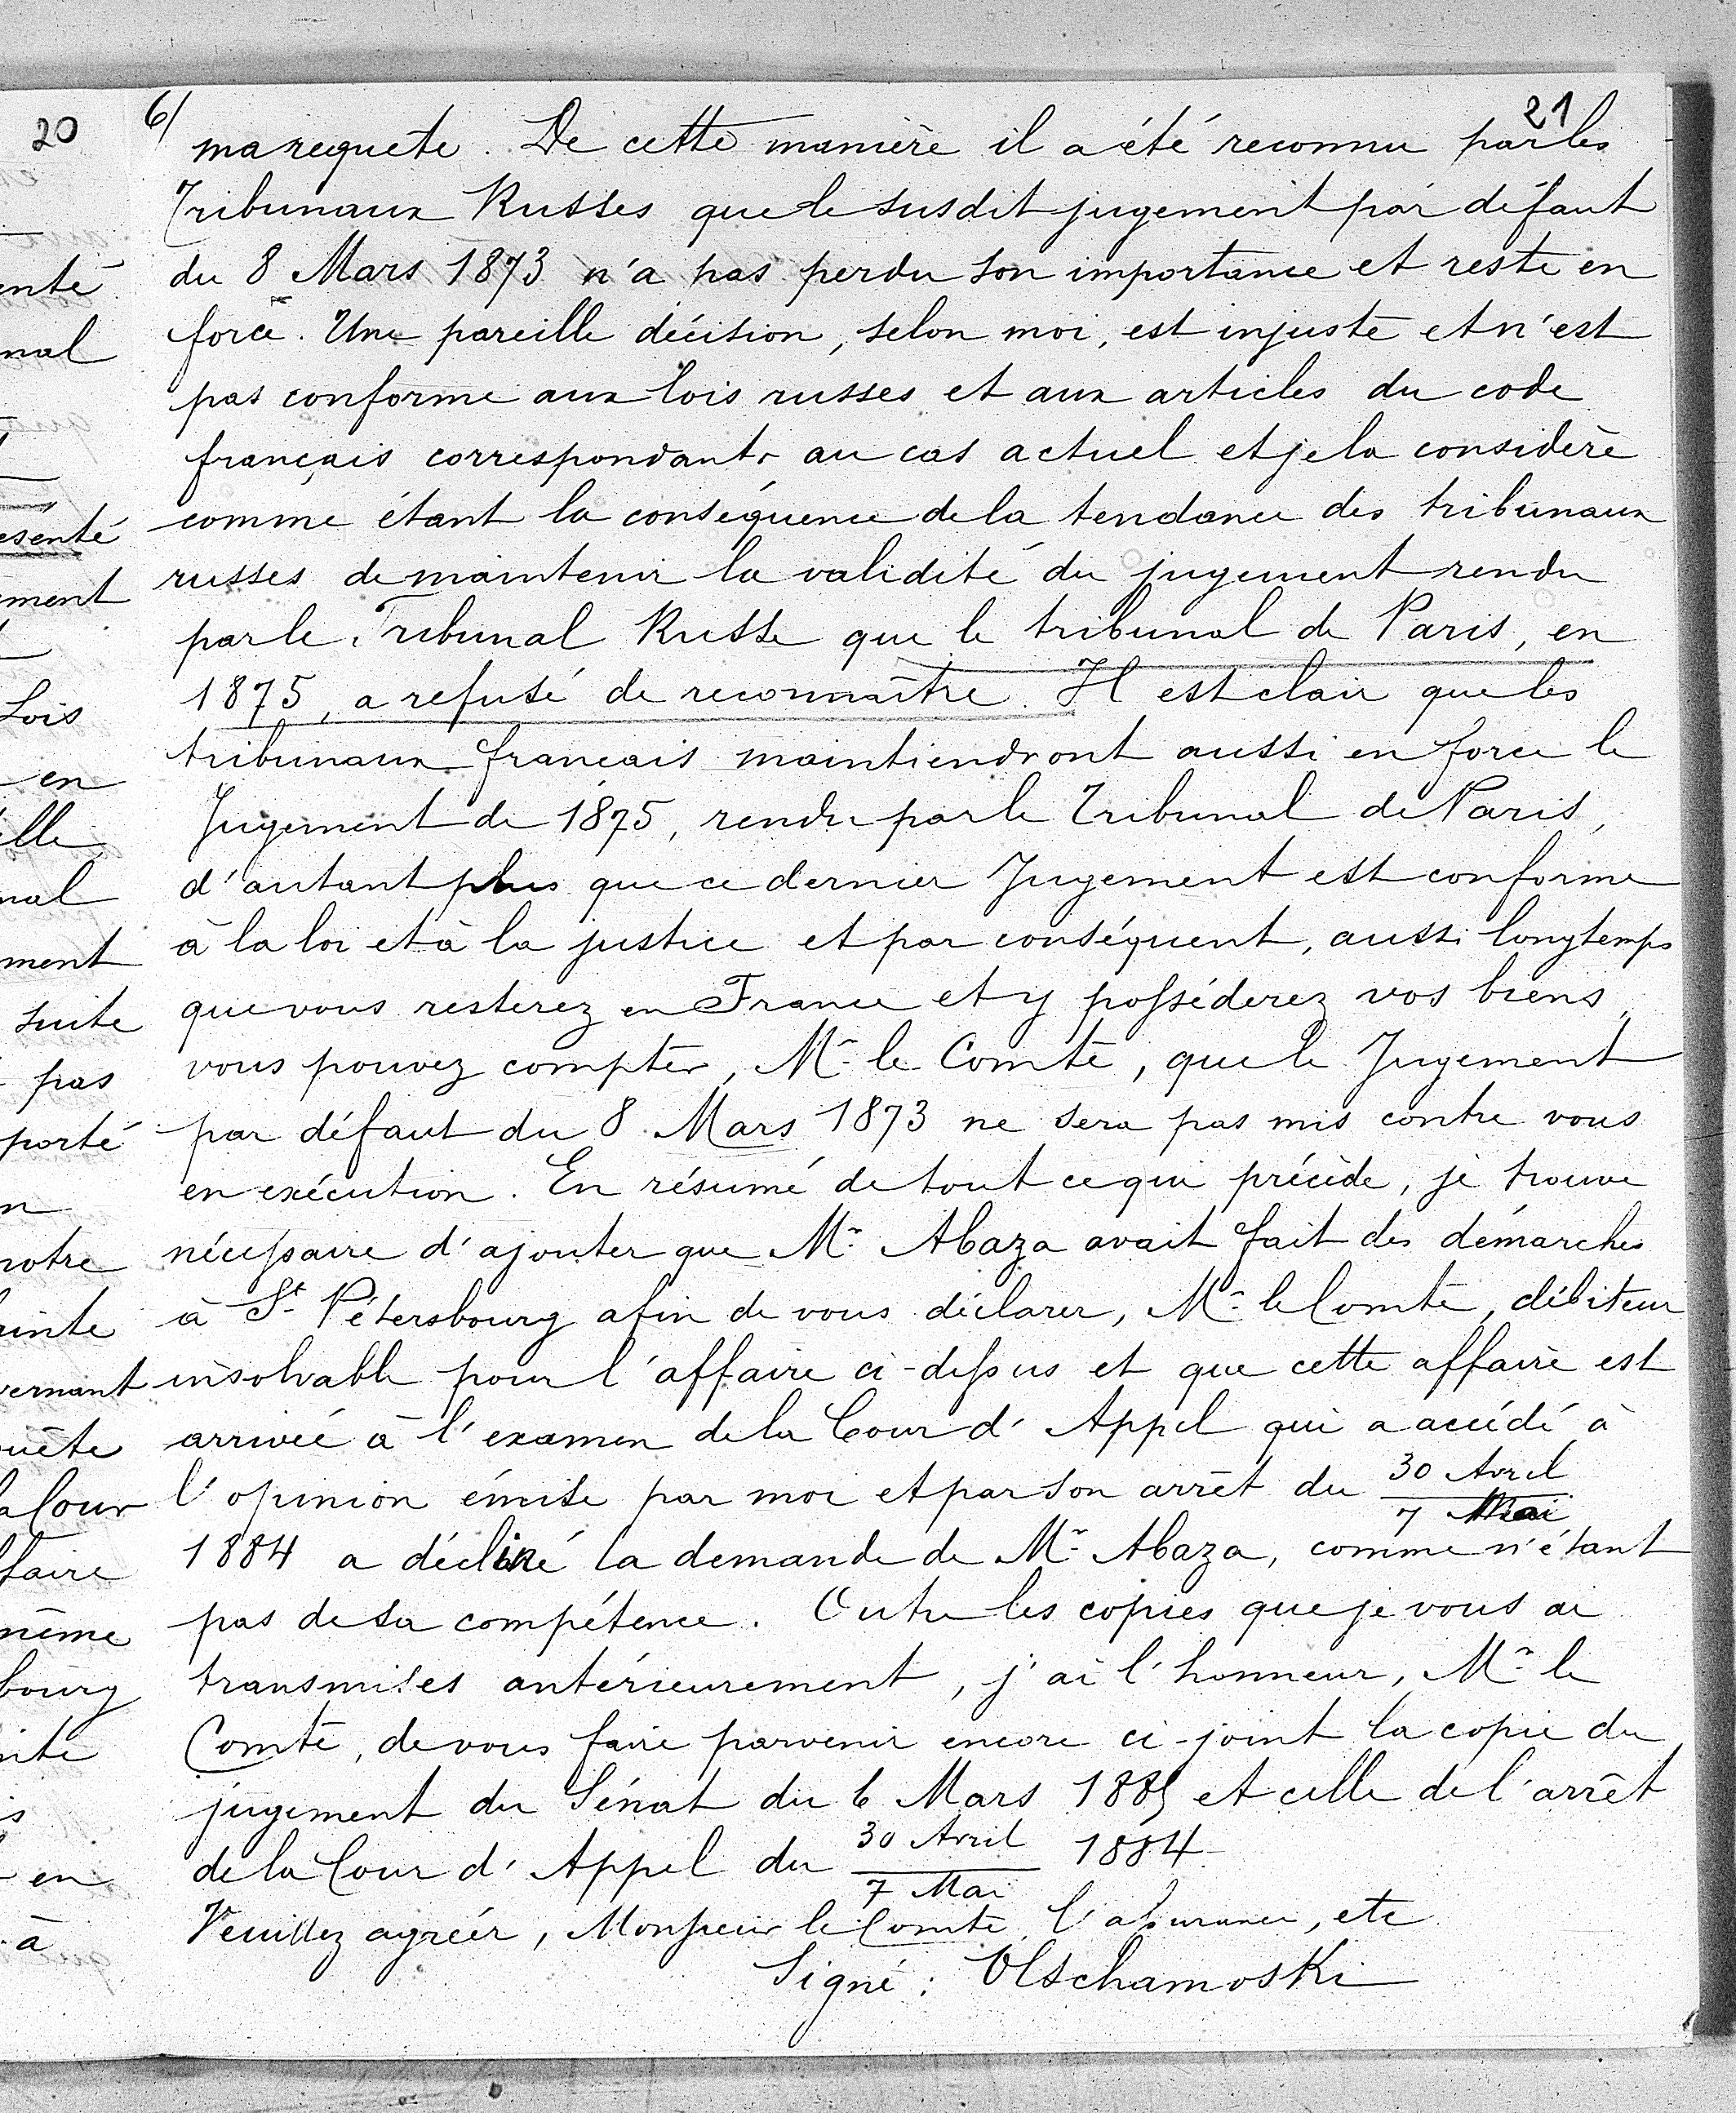 20
6/
21
ma requete. De cette manière il a été reconnu par les
Tribunaux Russes que le susdit jugement par défaut
du 8 Mars 1873 n'a pas perdu son importance et reste en
force. Une pareille décision, selon moi, est injuste et n'est
pas conforme aux lois russes et aux articles du code
français correspondants au cas actuel et je la considère
comme étant la conséquence de la tendance des tribunaux
russes de maintenir la validité du jugement rendu
par le Tribunal Russe que le tribunal de Paris, en
1875, a refusé de reconnaître. Il est clair que les
tribunaux français maintiendront aussi en force le
Jugement de 1875, rendu par le Tribunal de Paris,
d'autant plus que ce dernier Jugement est conforme
à la loi et à la justice et par conséquent, aussi longtemps
que vous resterez en France et y posséderez vos biens,
vous pouvez compter, Mr le Comte, que le Jugement
par défaut du 8 Mars 1873 ne sera pas mis contre vous
en exécution. En résumé de tout ce qui précède, je trouve
nécessaire d'ajouter que Mr Abaza avait fait des démarches
à St Pétersbourg afin de vous déclarer, Mr le Comte, débiteur
insolvable pour l'affaire ci-dessus et que cette affaire est
arrivée à l'examen de la Cour d'Appel qui a accédé à
l'opinion émise par moi et par son arrêt du 30 Avril
7 Mai
1884 a décliné la demande de Mr Abaza, comme n'étant
pas de sa compétence. Outre les copies que je vous ai
transmises antérieurement, j'ai l'honneur, Mr le
Comte, de vous faire parvenir encore ci-joint la copie du
jugement du Sénat du 6 Mars 1885 et celle de l'arrêt
de la Cour d'Appel du 30 Avril 1884
7 Mai
Veuillez agréer, Monsieur le Comte, l'assurance, etc
Signé: Olschamoski
enté
nal
ésenté
ement
Lois
en
elle
nal
ment
suite
pas
porté
n
notre
ainte
vernant
uête
la Cour
ffaire
même
bourg
ite
is
en
à